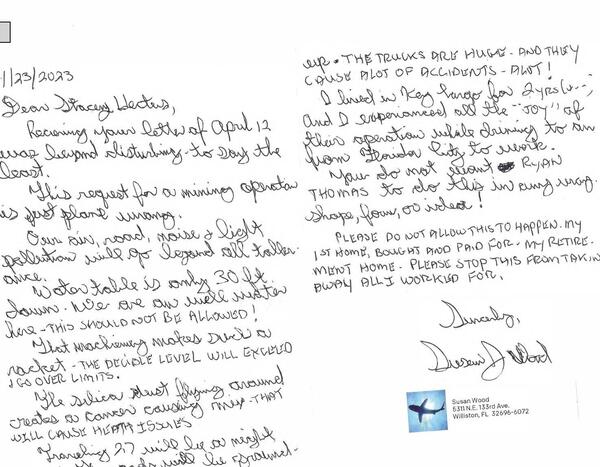 1/23/2023
Dear Stacey Hectus,
Receiving your letter of April 12
was beyond disturbing - to say the
least.
This request for a mining operation
is just plane wrong.
Our air, road, noise & light
pollution will go beyond all toller-
ance.
Water table is only 30 ft.
down. We are on well water
here - THIS SHOULD NOT BE ALLOWED!
That machinery makes such a
racket - THE DECIBLE LEVEL WILL EXCEED
& GO OVER LIMITS.
The silica dust flying around
creates a cancer causing mix - THAT
WILL CAUSE HEATH ISSUES
Traveling 27 will be a night
will be ground-
up. THE TRUCKS ARE HUGE - AND THEY
CAUSE ALOT OF ACCIDENTS - ALOT!
I lived in Key Largo for 2 yrs
and I experienced all the "JOY" of
their operation while driving to an
from Florida City to work.
You do not want RYAN
THOMAS to do this in any way,
shape, form, or idea!
PLEASE DO NOT ALLOW THIS TO HAPPEN. MY
1ST HOME, BOUGHT AND PAID FOR - MY RETIRE-
MENT HOME. PLEASE STOP THIS FROM TAKIN
AWAY ALL I WORKED FOR.
Sincerly,
Susan J Wood
Susan Wood
5311 N.E. 133rd Ave.
Williston, FL 32696-6072